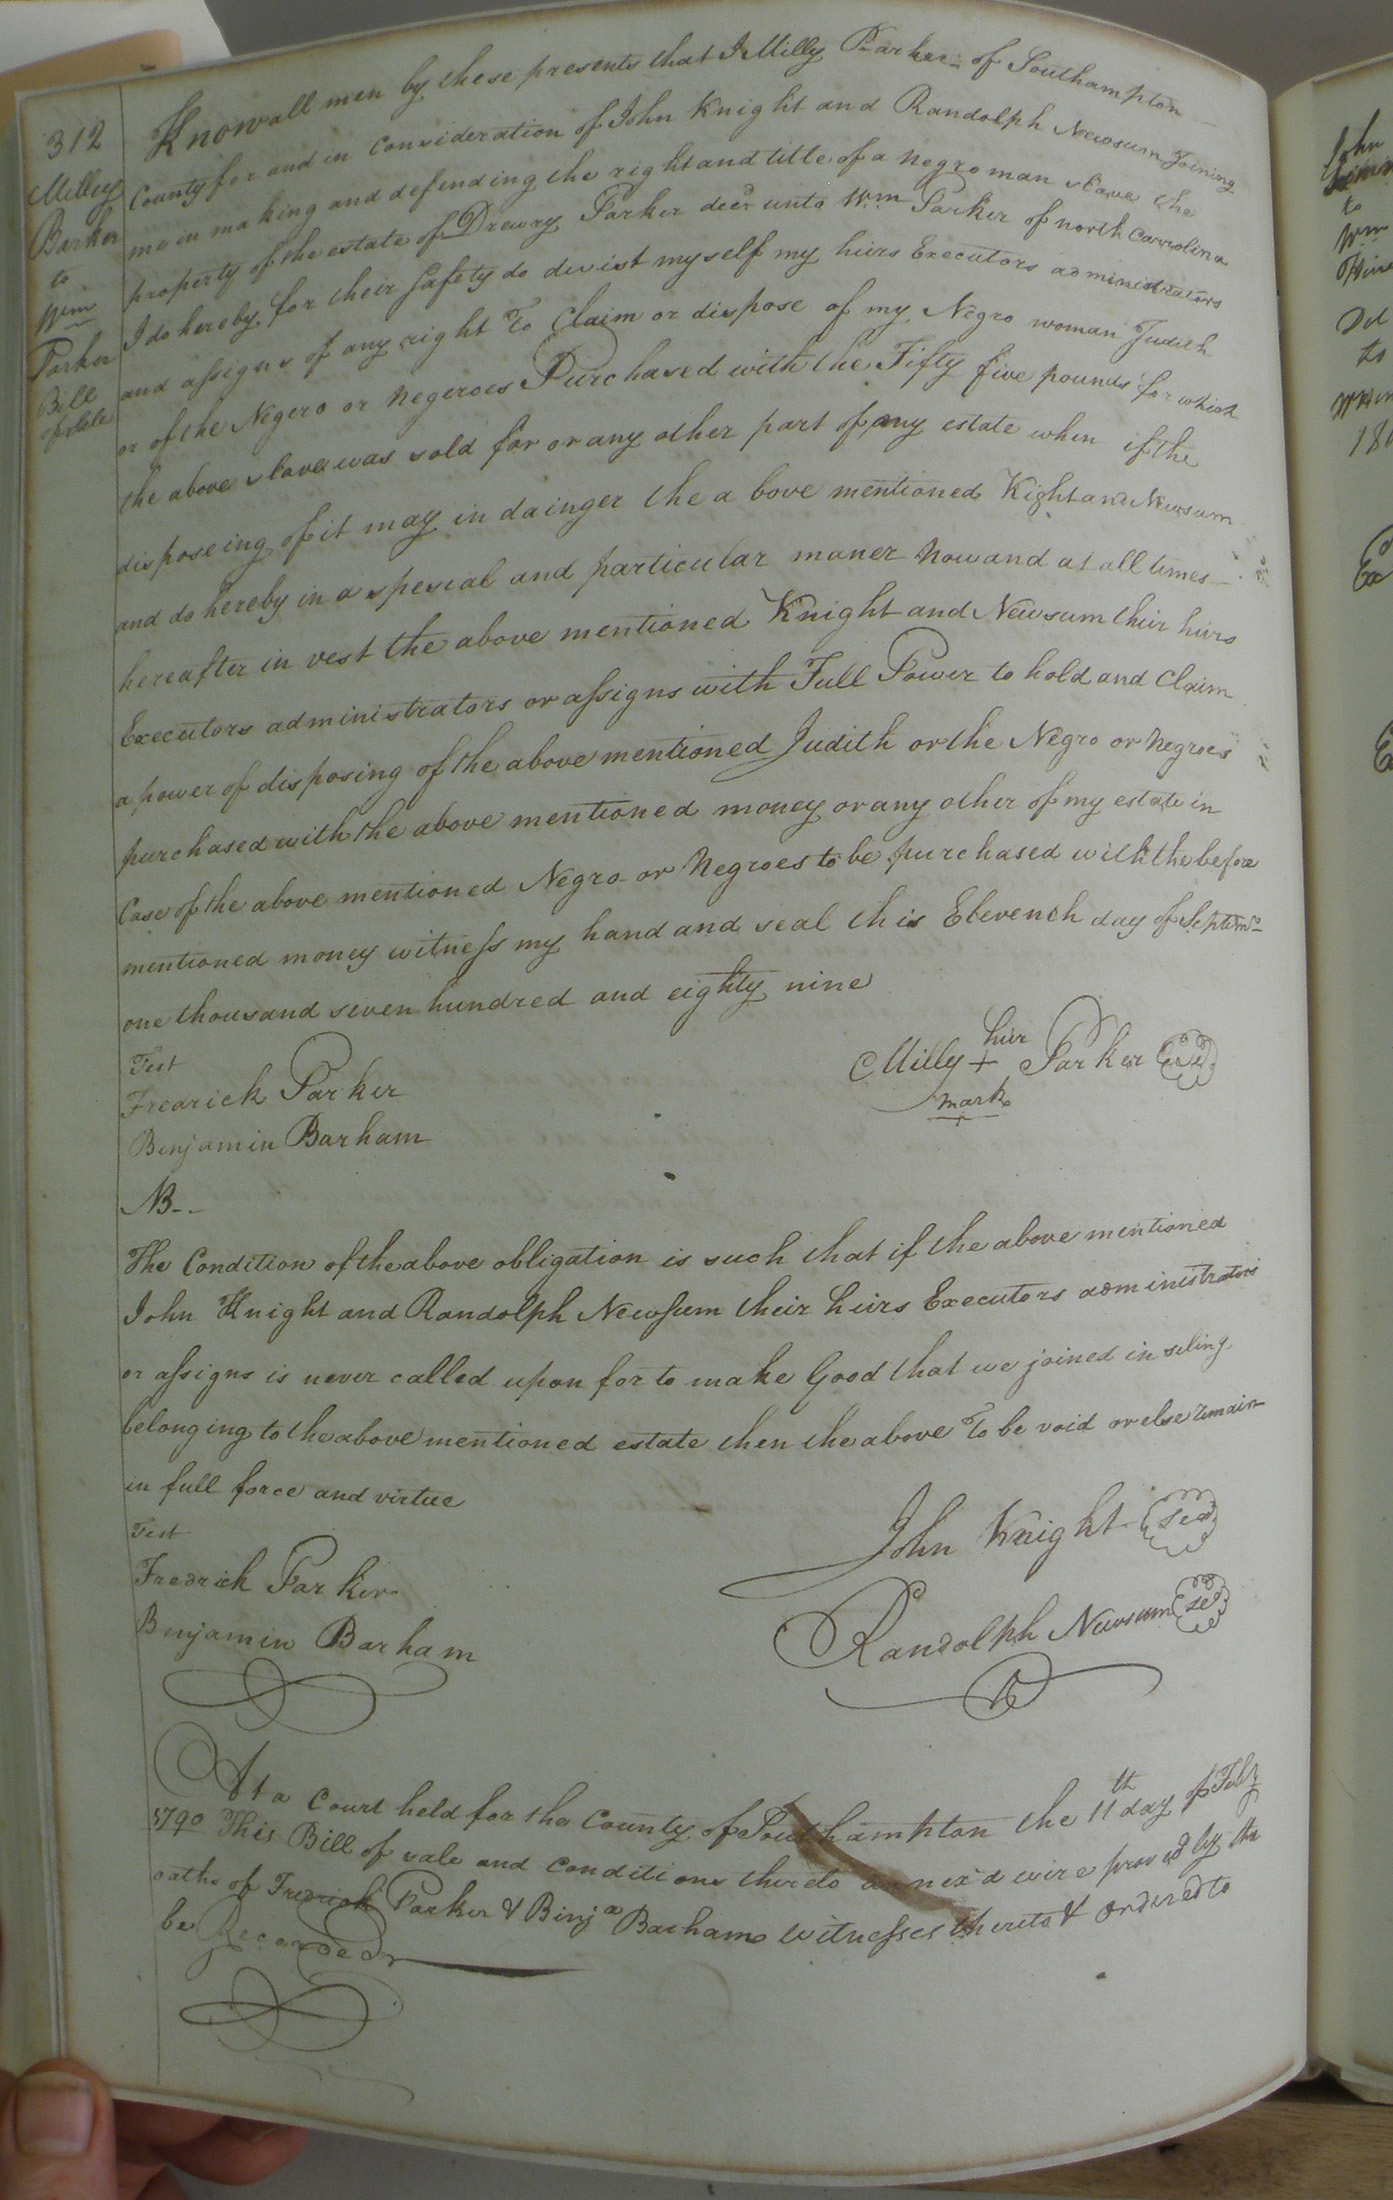 312
Milley
Barker
to
Wm
Parker
Bill
of Sale
Know all men by these presents that I Milly Parker of Southampton
County for and in Consideration of John Knight and Randolph Newsum Joining
me in making and defending the right and title of a negro man slave the
property of the estate of Drewry Parker decd unto Wm Parker of north Carrolina
I do hereby for their Safety do devist myself my hiirs Executors administrators
and assigns of any right To Claim or dispose of my Negro woman Judith
or of the Negero or negeroes Purchased with the Fifty five pounds for which
the above slave was sold for or any other part of my estate when if the
disposeing of it may in dainger the a bove mentioned Kight and Newsum
and do hereby in a spesial and particular maner now and at all times
hereafter in vest the above mentioned Knight and Newsum their hiirs
Executors administrators or assigns with Full Power to hold and Claim
a power of disposing of the above mentioned Judith or the Negro or negroes
purchased with the above mentioned money or any other of my estate in
Case of the above mentioned Negro or Negroes to be purchased with the before
mentioned money witness my hand and seal this Elevench day of Septemr
one thousand seven hundred and eighty nine
Test
Fredrick Parker
Benjamin Barham
hir
Milly + Parker Seal
mark
NB--
The Condition of the above obligation is such that if the above mentioned
John Knight and Randolph Newsum their hiirs Executors administrators
or assigns is never called upon for to make Good that we joined in seling
belonging to the above mentioned estate then the above To be void or else remain
in full force and virtue
Test
Fredrick Parker
Benjamin Barham
John Knight Seal
Randolph Newsum Seal
At a Court held for the County of Southampton the 11th day of Feby
1790 This Bill of sale and conditions thereto annex'd wire proved by the
oaths of Fredrick Parker & Binja Barham witnesses thereto & ordered to
be Recorded
John
to
Wm
Del
to
180